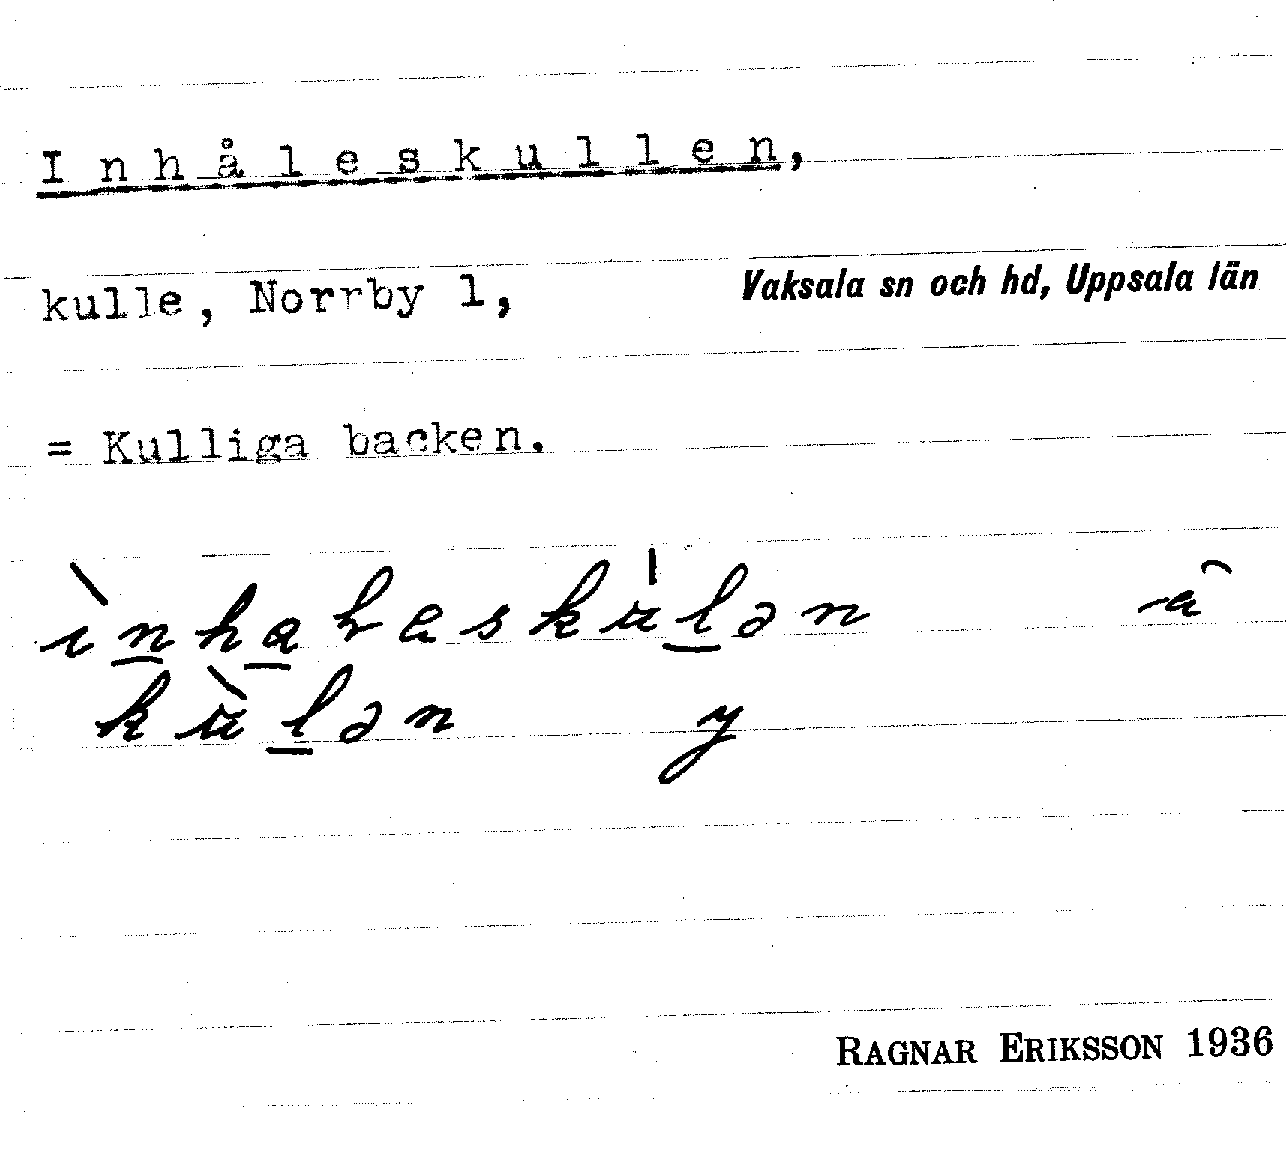 Inhåleskullen,
kulle, Norrby 1, Vaksala sn och hd, Uppsala län
= Kulliga backen.
kùl̲ən y
RAGNAR ERIKSSON 1936